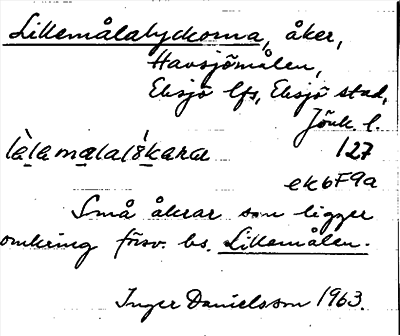 Lillemålalyckorna, åker,
Havsjömålen,
Eksjö lfs, Eksjö stad,
Jönk. l.
127
ek6F9a
Små åkrar som ligger
omkring försv. bs. Lillemålen.
Inger Danielsson 1963.